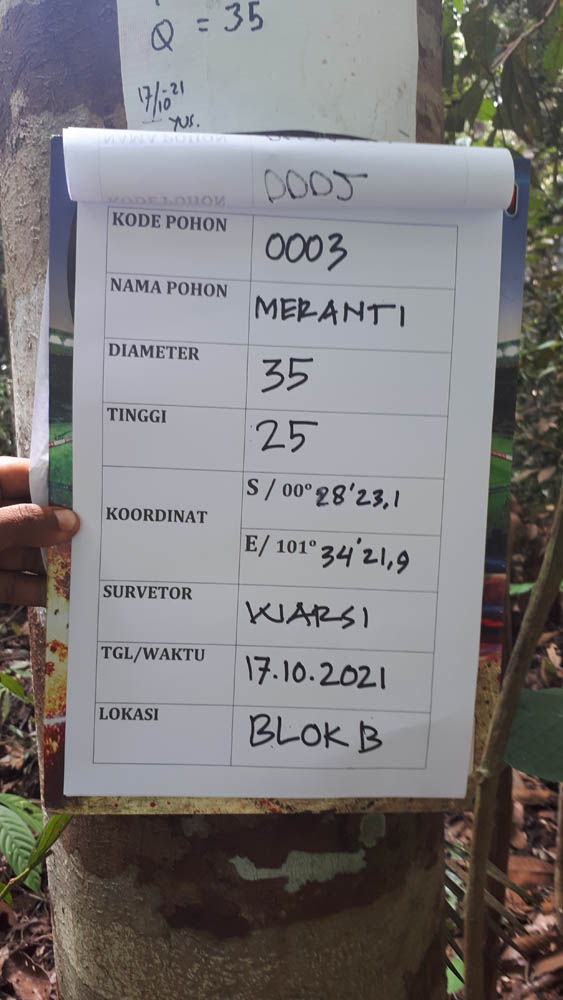 Q = 35
17/10-21
YUS.
0005
KODE POHON 0003
NAMA POHON MERANTI
DIAMETER 35
TINGGI 25
KOORDINAT
S / 00° 28'23,1
E/ 101° 34'21,9
SURVETOR WARSI
TGL/WAKTU 17.10.2021
LOKASI BLOK B